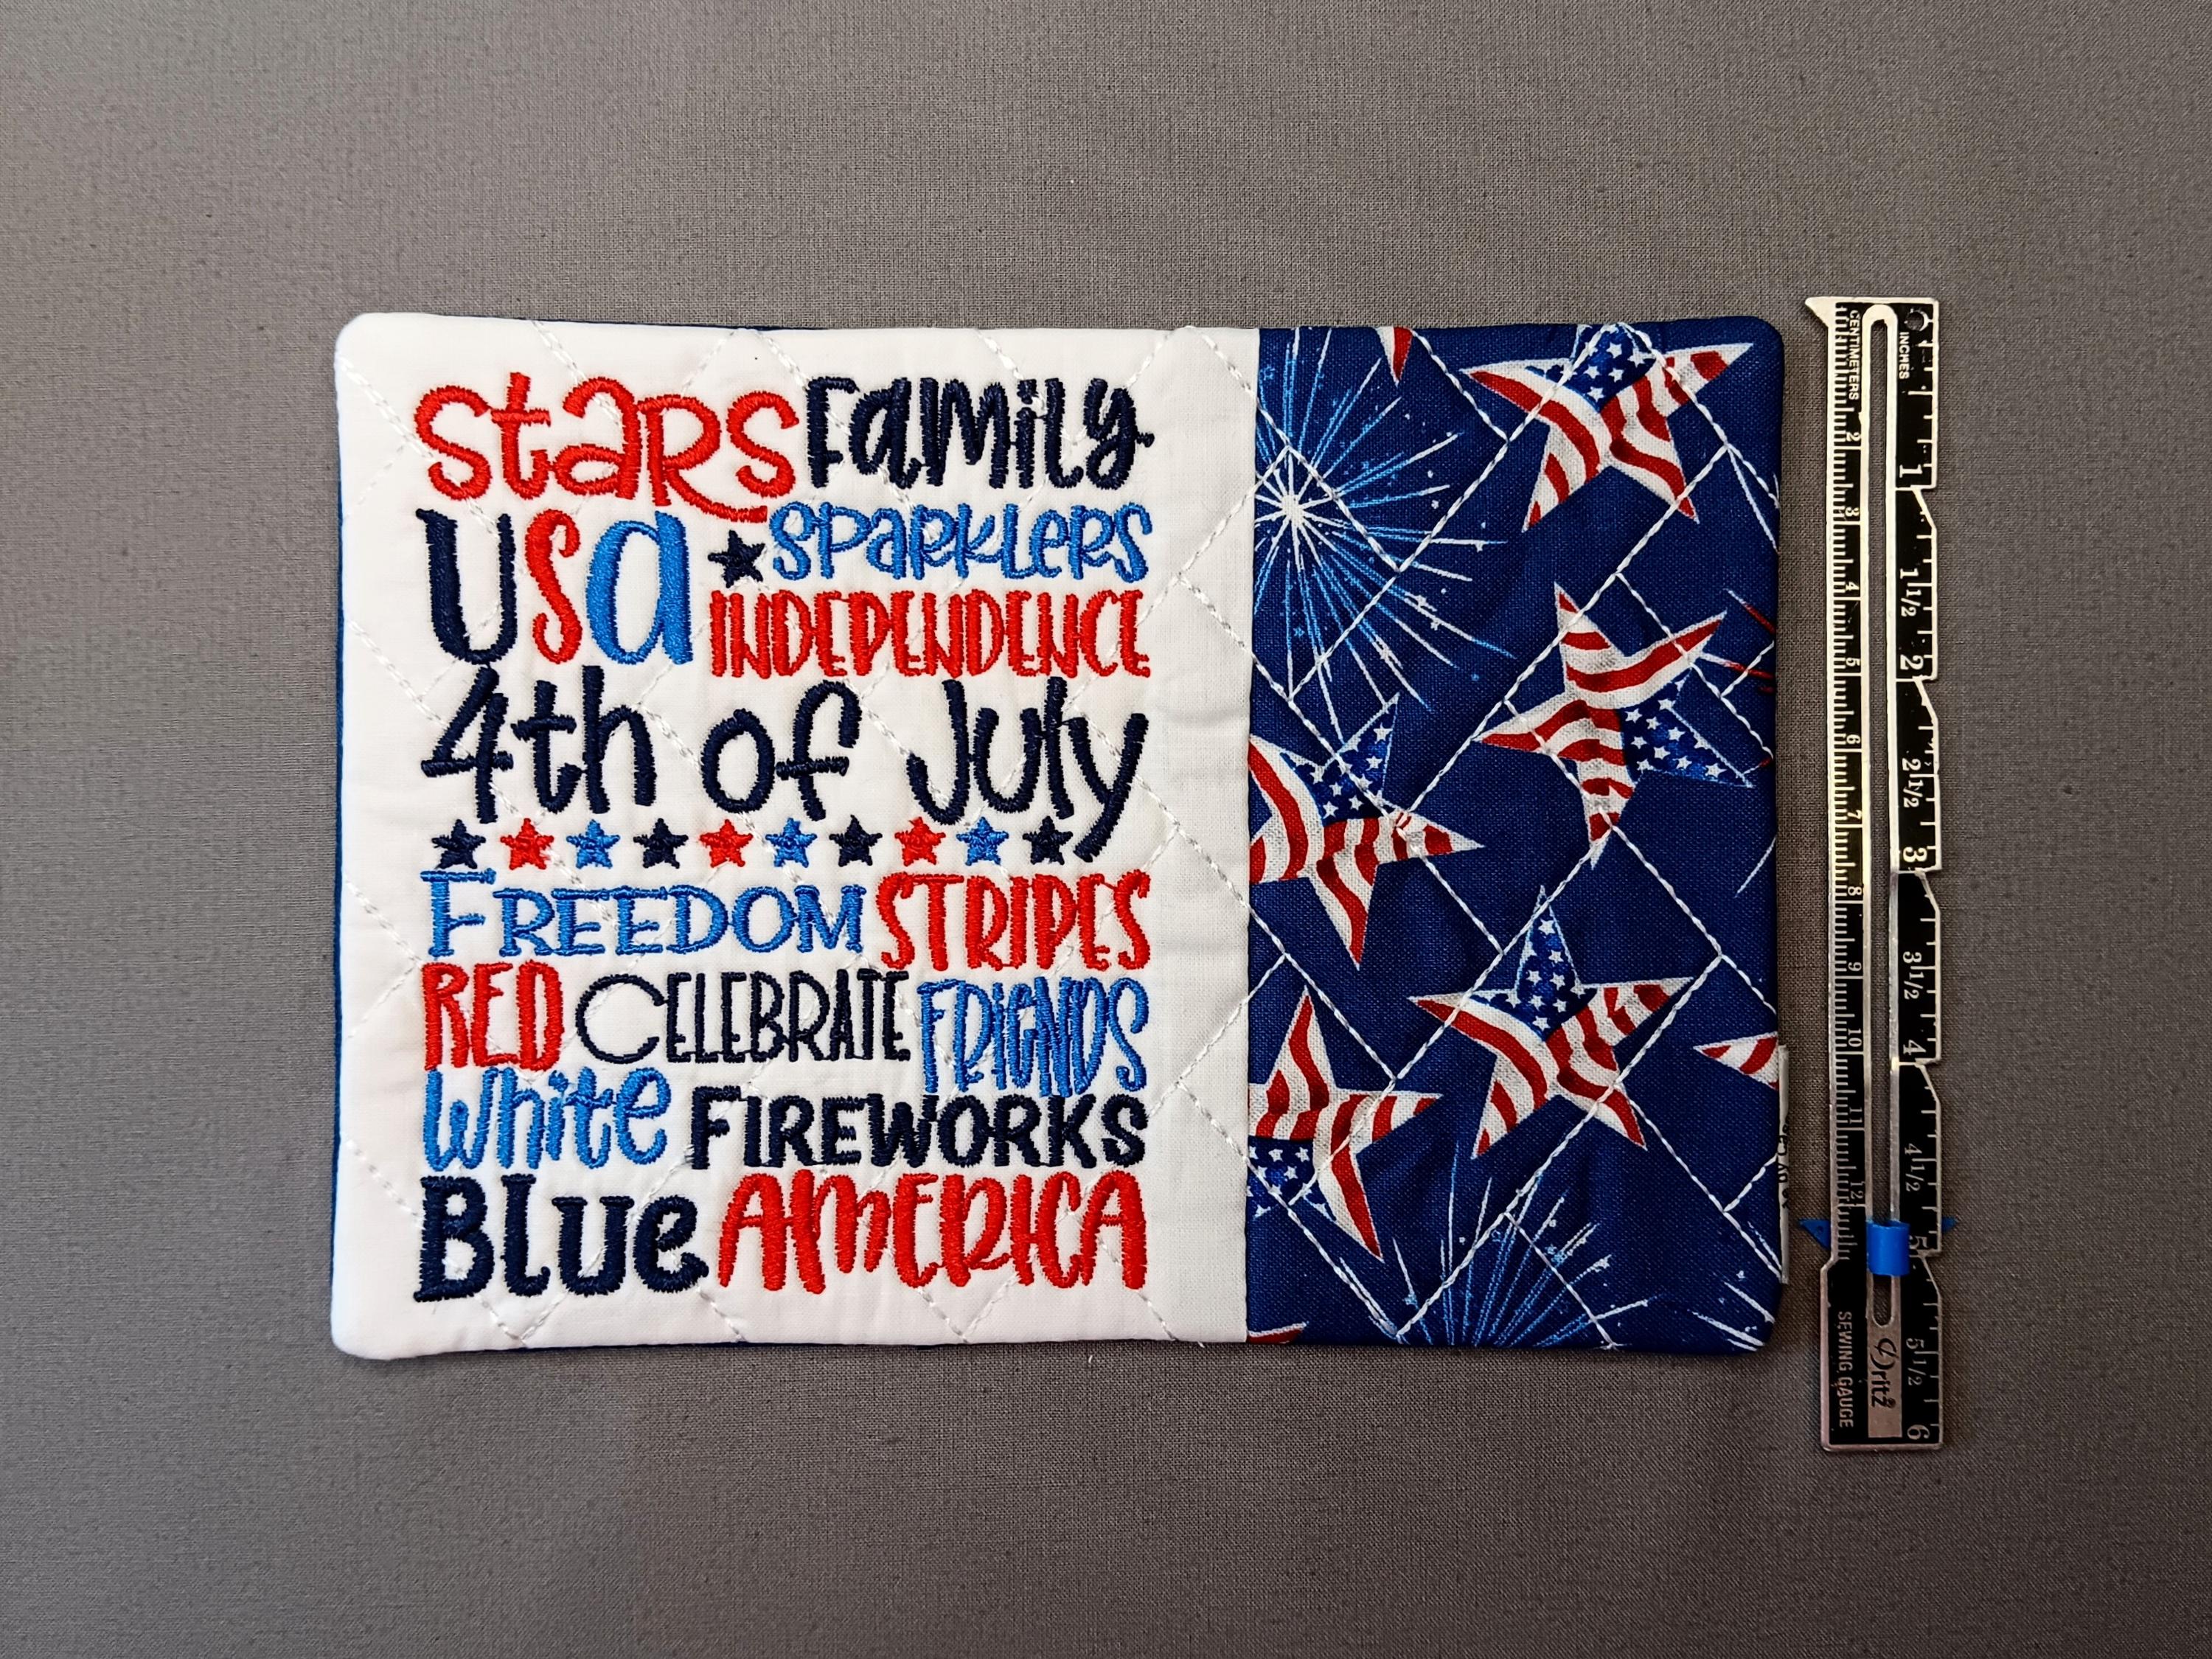 Stars Family
USA Sparklers
INDEPENDENCE
4th of July
FREEDOM STRIPES
RED CELEBRATE FRIENDS
White FIREWORKS
Blue AMERICA
CENTIMETERS
2 3 4 5 6 7 8 9 10 11 12
SEWING GAUGE
INCHES
1 1 1/2 2 2 1/2 3 3 1/2 4 4 1/2 5 5 1/2 6
Dritz